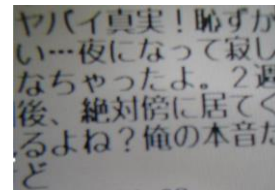 ヤバイ真実！恥ずか
い…夜になって寂し
なちゃったよ。２週
後、絶対傍に居てく
るよね？俺の本音だ
ど